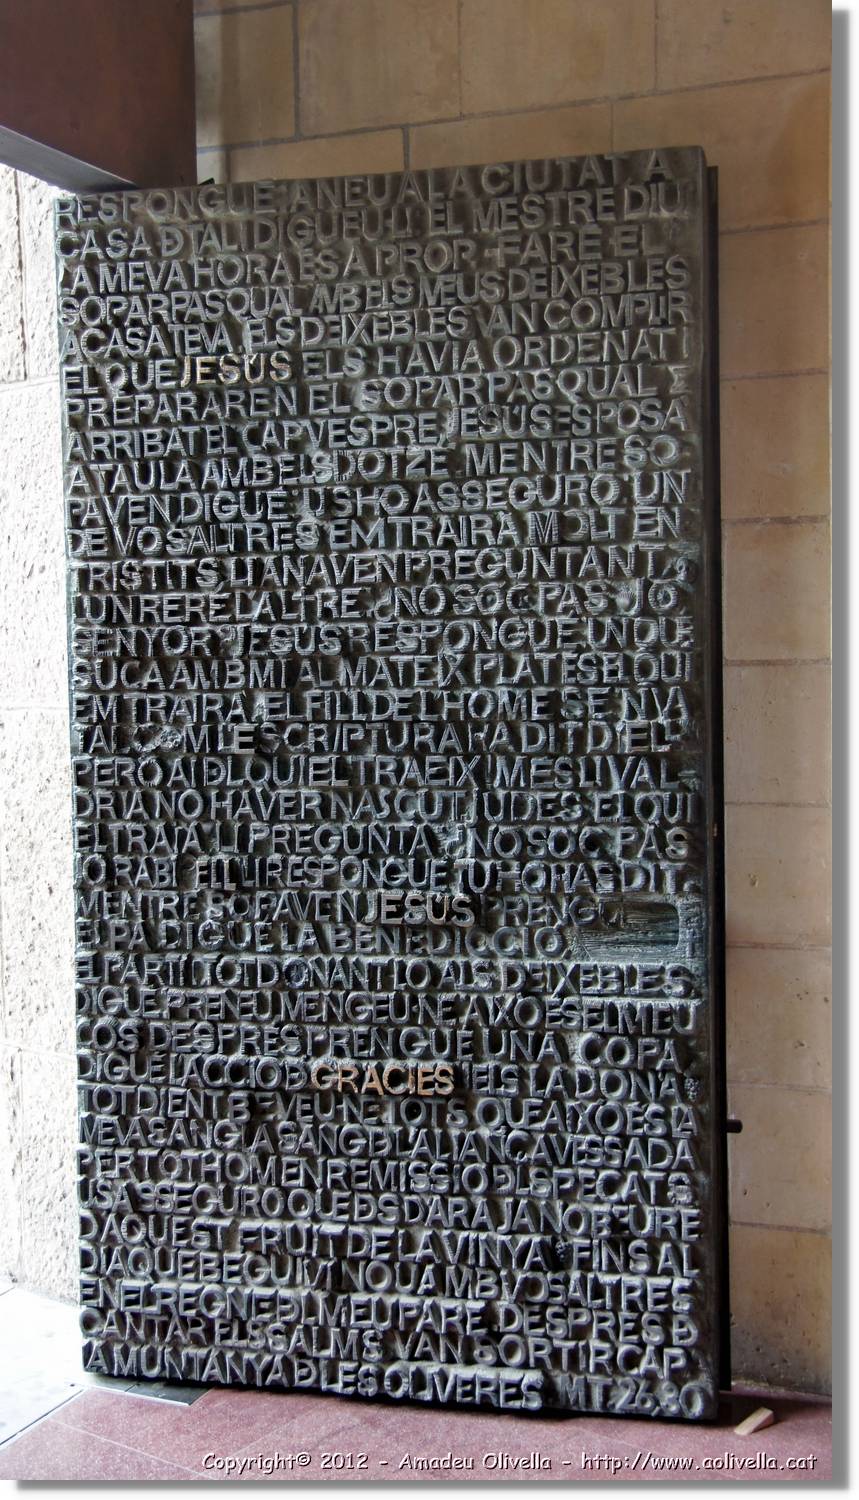 RESPONGUÉ: ANEU A LA CIUTAT A
CASA D TAL I DIGUEU-LI: EL MESTRE DIU
LA MEVA HORA ÉS A PROP. FARÉ EL
SOPAR PASQUAL AMB ELS MEUS DEIXEBLES
A CASA TEVA. ELS DEIXEBLES VAN COMPLIR
EL QUE JESÚS ELS HAVIA ORDENAT I
PREPARAREN EL SOPAR PASQUAL
ARRIBAT EL CAPVESPRE, JESÚS ES POSÀ
A TAULA AMB ELS DOTZE. MENTRE SO-
PAVEN DIGUÉ: US HO ASSEGURO: UN
DE VOSALTRES EM TRAIRÀ MOLT EN
TRISTITS LI ANAVEN PREGUNTANT
L'UN RERE L'ALTRE. ¿NO SOC PAS JO
SENYOR? JESÚS RESPONGUÉ UN QUE
SUCA AMB MI AL MATEIX PLAT ÉS EL QUI
EM TRAIRÀ. EL FILL DE L'HOME SE'N VA
TAL COM L'ESCRIPTURA HA DIT D'ELL
PERÒ AI DL QUI EL TRAEIX! MÉS LI VAL-
DRIA NO HAVER NASCUT. JUDES EL QUI
EL TRAÏA LI PREGUNTÀ ¿NO SOC PAS
JO RABÍ? ELL LI RESPONGUÉ TU HO HAS DIT.
MENTRE SOPAVEN JESÚS PRENGUÉ
EL PA DIGUÉ LA BENEDICCIÓ
EL PARTÍ I TOT DONANT-LO ALS DEIXEBLES
DIGUÉ PRENEU, MENGEU-NE AIXÒ ÉS EL MEU
COS DESPRÉS PRENGUÉ UNA COPA
DIGUÉ L'ACCIÓ D GRÀCIES I ELS LA DONÀ
TOT DIENT BEVEU-NE TOTS QUE AIXÒ ÉS LA
MEVA SANG LA SANG DL'ALIANÇA VESSADA
PER TOTHOM EN REMISSIÓ DLS PECATS
US ASSEGURO QUE DS D'ARA JA NO BEURÉ
D'AQUEST FRUIT DE LA VINYA FINS AL
DIA QUE BEGUI VI NOU AMB VOSALTRES
EN EL REGNE DL MEU PARE. DESPRÉS D
CANTAR ELS SALMS VAN SORTIR CAP
LA MUNTANYA D LES OLIVERES MT. 26,30
Copyright© 2012 - Amadeu Olivella - http://www.aolivella.cat